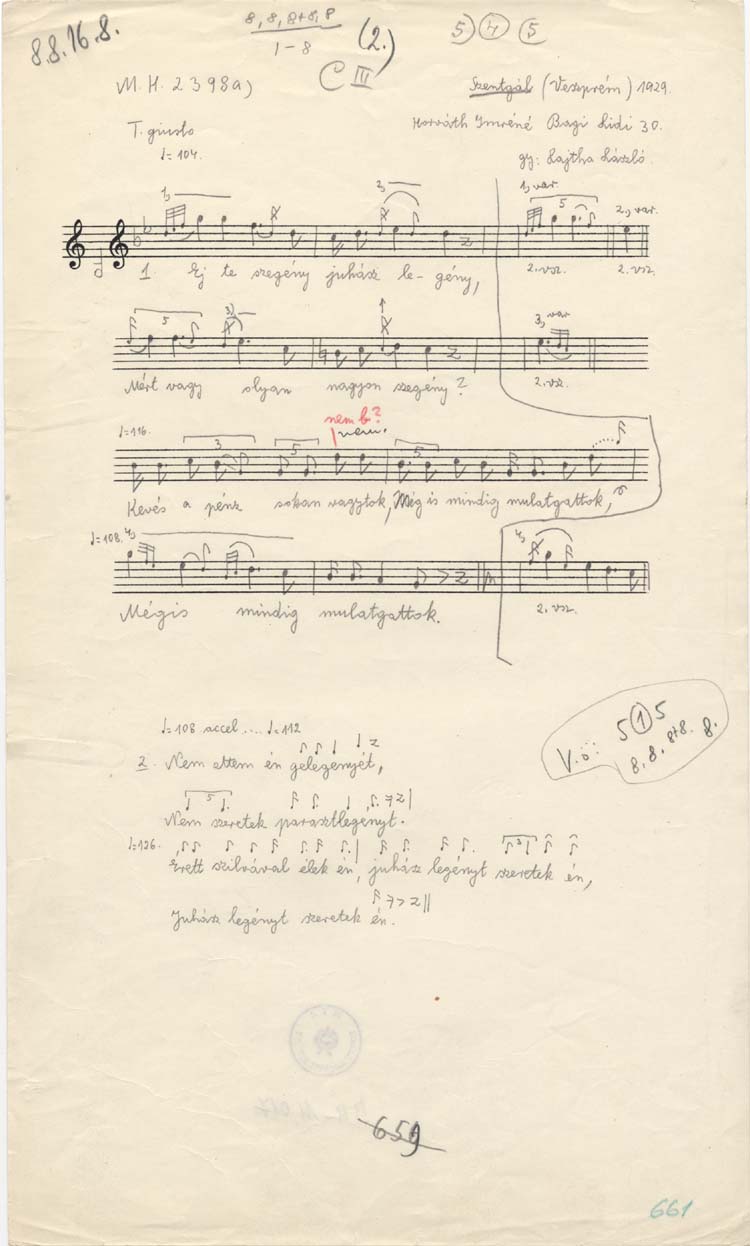 8.8.16.8.
8, 8, 8+8, 8
1-8
(2.)
5 4 5
C III
M. H. 2398a)
Szentgál (Veszprém) 1929.
T. giusto
Horváth Imréné Bagi Lidi 30.
♩= 104.
gy: Lajtha László.
1, 3, 1, var. 5 2, var.
1. Ej te szegény juhász le- gény, 2. vsz. 2. vsz.
5 3) 3, var
Mért vagy olyan nagyon szegény? 2. vsz.
nem b?
♩=116. nem.
3 5 5
Kevés a pénz sokan vagytok, Mégis mindig mulatgattok,
♩=108. 4, 4,
Mégis mindig mulatgattok. 2. vsz.
♩=108 accel .... ♩=112
2. Nem ettem én gelegenyét,
5
Nem szeretek parasztlegényt.
♩=126. 3
Érett szilvával élek én, juhász legényt szeretek én,
Juhász legényt szeretek én.
V.ö: 5 1 5
8. 8. 8+8. 8.
659
661